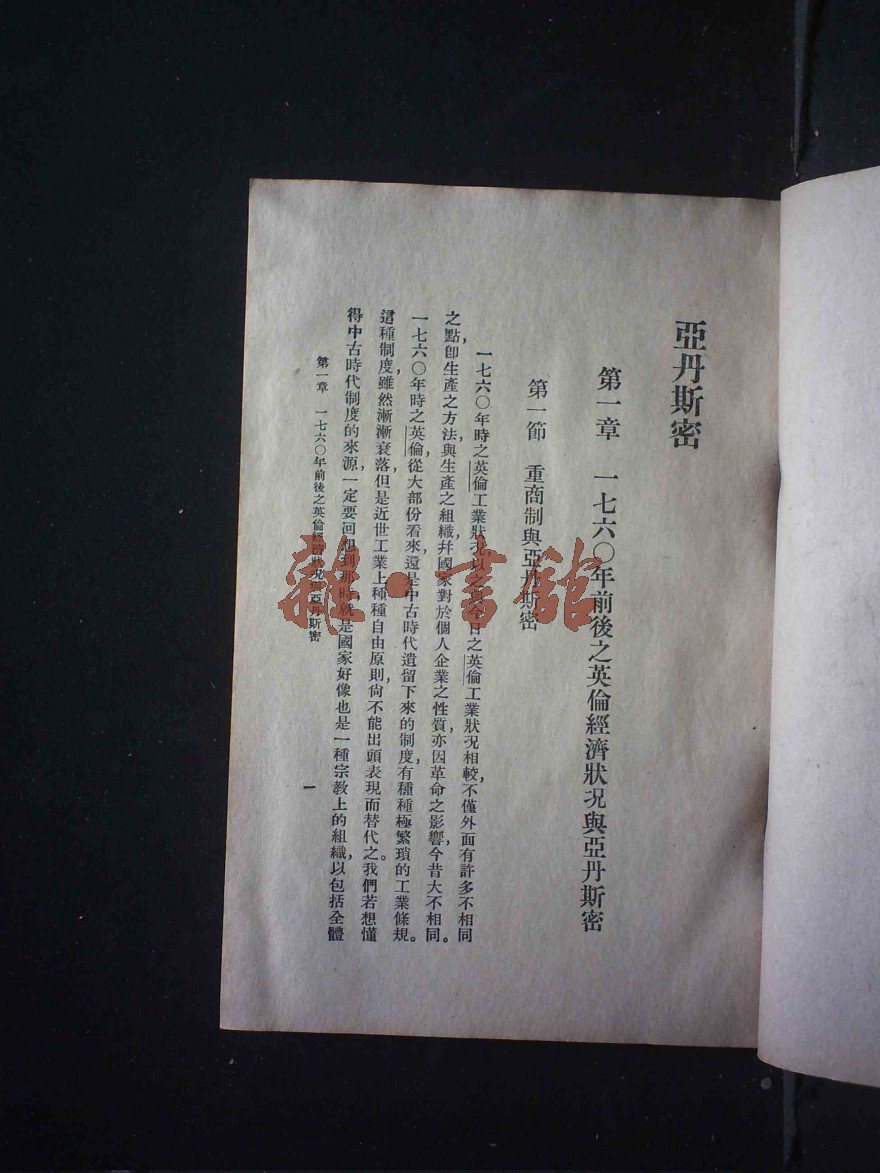 亞丹斯密
第一章　一七六〇年前後之英倫經濟狀况與亞丹斯密
第一節　重商制與亞丹斯密
一七六〇年時之英倫工業狀况以之與今日之英倫工業狀况相較，不僅外面有許多不相同
之點，卽生產之方法與生產之組織，幷國家對於個人企業之性質，亦因革命之影響，今昔大不相同。
一七六〇年時之英倫，從大部份看來，還是中古時代遺留下來的制度，有種種極繁瑣的工業條規。
這種制度，雖然漸漸衰落，但是近世工業上種種自由原則，尙不能出頭表現而替代之。我們若想懂
得中古時代制度的來源，一定要回想到那時，就是國家好像也是一種宗教上的組織，以包括全體
第一章　一七六〇年前後之英倫經濟狀况與亞丹斯密
一
雜·書館